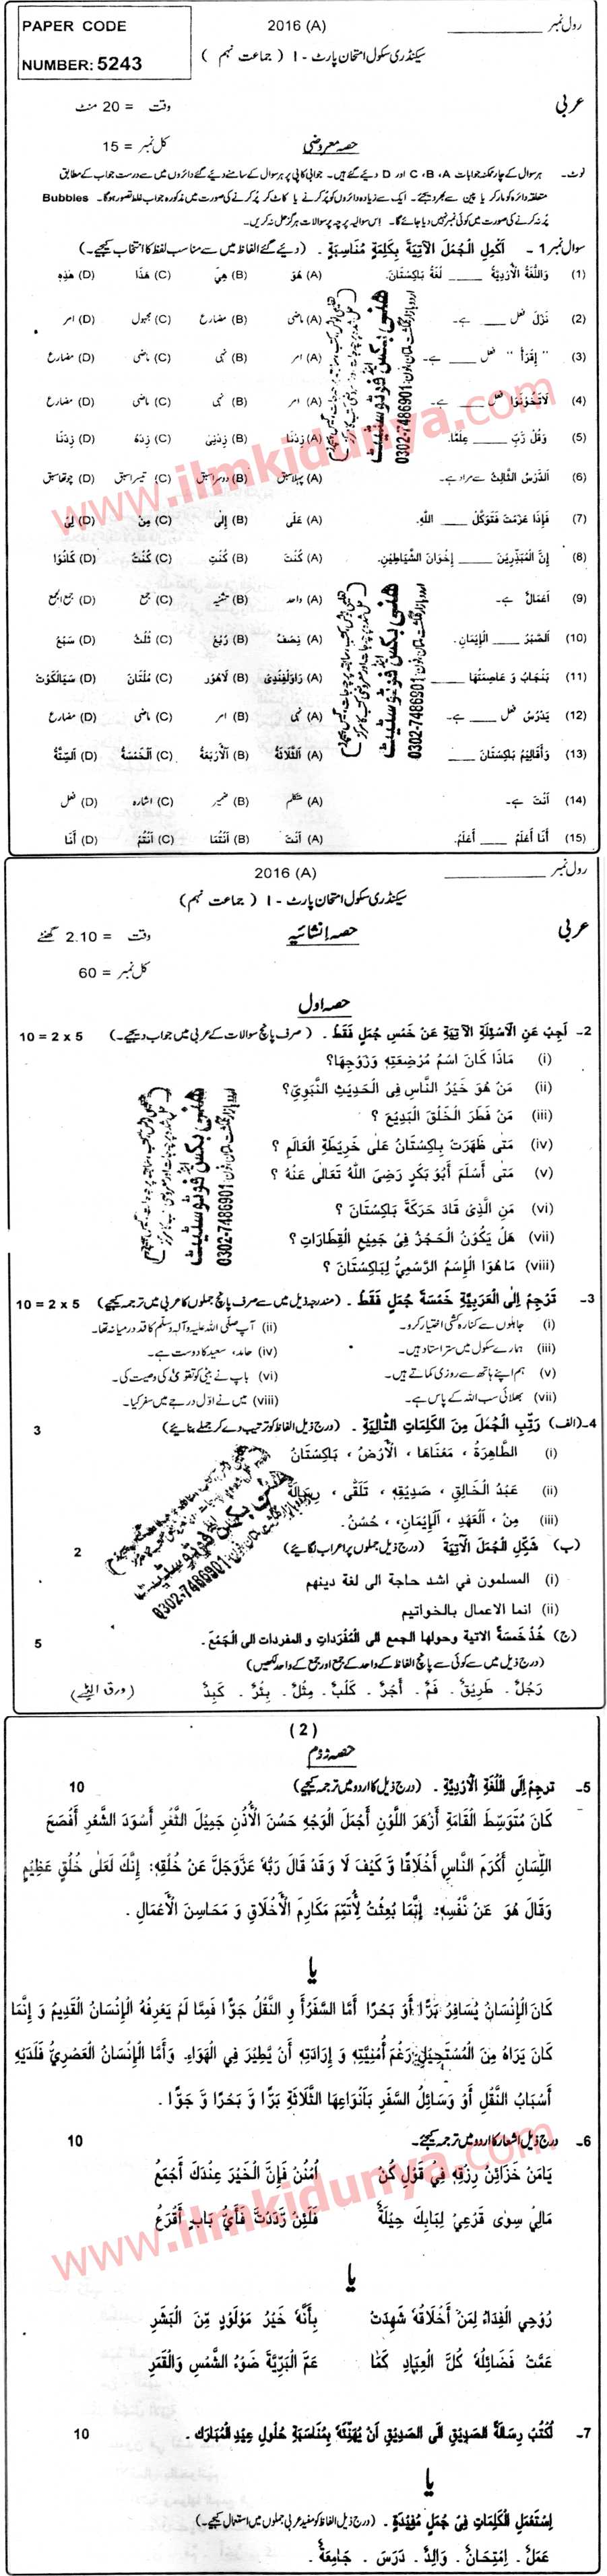 PAPER CODE
NUMBER: 5243
2016 (A)
رول نمبر
سیکنڈری سکول امتحان پارٹ - I ( جماعت نہم )
عربی
وقت = 20 منٹ
حصہ معروضی
کل نمبر = 15
نوٹ۔ ہر سوال کے چار ممکنہ جوابات A ، B ، C اور D دیئے گئے ہیں۔ جوابی کاپی پر ہر سوال کے سامنے دیئے گئے دائروں میں سے درست جواب کے مطابق
متعلقہ دائرہ کو مارکر یا پین سے بھر دیجئے۔ ایک سے زیادہ دائروں کو پُر کرنے یا کاٹ کر پُر کرنے کی صورت میں مذکورہ جواب غلط تصور ہوگا۔ Bubbles
پُر نہ کرنے کی صورت میں کوئی نمبر نہیں دیا جائے گا۔ اِس سوالیہ پرچہ پر سوالات ہرگز حل نہ کریں۔
سوال نمبر 1 - اَکْمِلِ الْجُمَلَ الْآتِيَةَ بِكَلِمَةٍ مُنَاسِبَةٍ . ( دیئے گئے الفاظ میں سے مناسب لفظ کا انتخاب کیجیے)
(1) وَاللُّغَةُ الْأُرْدِيَّةُ ____ لُغَةُ بَاكِسْتَانَ. (A) هُوَ (B) هِيَ (C) هٰذَا (D) هٰذِهٖ
(2) نَزَلَ فعل ____ ہے۔ (A) ماضی (B) مضارع (C) مجہول (D) امر
(3) " اِقْرَأْ " فعل ____ ہے۔ (A) امر (B) نہی (C) ماضی (D) مضارع
(4) لَاتَخُونُوا فعل ____ ہے۔ (A) امر (B) نہی (C) ماضی (D) مضارع
(5) وَقُلْ رَّبِّ ____ عِلْمًا. (A) زِدْنَا (B) زِدْنِيْ (C) زِدْهُ (D) زِدْنَا
(6) اَلدَّرْسُ الثَّالِثُ سے مراد ہے۔ (A) پہلا سبق (B) دوسرا سبق (C) تیسرا سبق (D) چوتھا سبق
(7) فَإِذَا عَزَمْتَ فَتَوَكَّلْ ____ اللهِ. (A) عَلَى (B) إِلَى (C) مِنْ (D) لِيْ
(8) إِنَّ الْمُبَذِّرِيْنَ ____ إِخْوَانَ الشَّيَاطِيْنِ. (A) كُنْتَ (B) كُنْتِ (C) كُنْتُ (D) كَانُوْا
(9) أَعْمَالٌ ہے۔ (A) واحد (B) تثنیہ (C) جمع (D) جمع الجمع
(10) اَلصَّبْرُ ____ الْإِيْمَانِ. (A) نِصْفُ (B) رُبْعُ (C) ثُلُثُ (D) سَبْعُ
(11) بَنْجَابُ وَ عَاصِمَتُهَا ____ (A) رَاوَلْفِنْدِى (B) لَاهُوْر (C) مُلْتَان (D) سِيَالْكَوْت
(12) يَدْرُسُ فعل ____ ہے۔ (A) نہی (B) امر (C) ماضی (D) مضارع
(13) وَأَقَالِيْمُ بَاكِسْتَانَ ____ (A) اَلثَّلَاثَةُ (B) اَلْأَرْبَعَةُ (C) اَلْخَمْسَةُ (D) اَلسِّتَّةُ
(14) اَنْتَ ہے۔ (A) متکلم (B) ضمیر (C) اشارہ (D) فعل
(15) أَنَا أَعْلَمُ ____ أَعْلَمُ. (A) أَنْتَ (B) أَنْتُمَا (C) أَنْتُمْ (D) أَنَا
ھنی بکس فوٹوسٹیٹ
0302-7486901
www.ilmkidunya.com
رول نمبر
2016 (A)
سیکنڈری سکول امتحان پارٹ - I ( جماعت نہم )
عربی
حصہ انشائیہ
وقت = 2.10 گھنٹے
کل نمبر = 60
حصہ اول
2- اَجِبْ عَنِ الْاَسْئِلَةِ الْآتِيَةِ عَنْ خَمْسِ جُمَلٍ فَقَطْ . ( صرف پانچ سوالات کے عربی میں جواب دیجیے۔) 10 = 2 x 5
(i) مَاذَا كَانَ اسْمُ مُرْضِعَتِهٖ وَزَوْجِهَا؟
(ii) مَنْ هُوَ خَيْرُ النَّاسِ فِى الْحَدِيْثِ النَّبَوِيِّ؟
(iii) مَنْ فَطَرَ الْخَلْقَ الْبَدِيْعَ ؟
(iv) مَتٰى ظَهَرَتْ بَاكِسْتَانُ عَلٰى خَرِيْطَةِ الْعَالَمِ ؟
(v) مَتٰى أَسْلَمَ أَبُوْ بَكْرٍ رَضِىَ اللّٰهُ تَعَالٰى عَنْهُ ؟
(vi) مَنِ الَّذِىْ قَادَ حَرَكَةَ بَاكِسْتَانَ ؟
(vii) هَلْ يَكُوْنُ الْحَجْزُ فِىْ جَمِيْعِ الْقِطَارَاتِ ؟
(viii) مَاهُوَا الْإِسْمُ الرَّسْمِيُّ لِبَاكِسْتَانَ ؟
ھنی بکس فوٹوسٹیٹ
0302-7486901
3- تَرْجِمْ اِلَى الْعَرَبِيَّةِ خَمْسَةَ جُمَلٍ فَقَطْ . (مندرجہ ذیل میں سے صرف پانچ جملوں کا عربی میں ترجمہ کیجیے) 10 = 2 x 5
(i) جاہلوں سے کنارہ کشی اختیار کرو۔ (ii) آپ صلی اللہ علیہ وآلہٖ وسلم کا قد درمیانہ تھا۔
(iii) ہمارے سکول میں ستر استاد ہیں۔ (iv) حامد، سعید کا دوست ہے۔
(v) ہم اپنے ہاتھ سے روزی کماتے ہیں۔ (vi) باپ نے بیٹی کو تقویٰ کی وصیت کی۔
(vii) بھلائی سب اللہ کے پاس ہے۔ (viii) میں نے اوّل درجے میں سفر کیا۔
4-(الف) رَتِّبِ الْجُمَلَ مِنَ الْكَلِمَاتِ التَّالِيَةِ . (درج ذیل الفاظ کو ترتیب دے کر جملے بنائیے) 3
(i) اَلطَّاهِرَةُ ، مَعْنَاهَا ، الْأَرْضُ ، بَاكِسْتَانُ
(ii) عَبْدُ الْخَالِقِ ، صَدِيْقِهٖ ، تَلَقّٰى ، رِسَالَةً
(iii) مِنْ ، اَلْعَهْدِ، اَلْإِيْمَانِ، حُسْنُ.
(ب) شَكِّلِ الْجُمَلَ الْآتِيَةَ (درج ذیل جملوں پر اعراب لگائیے) 2
(i) المسلمون في اشد حاجة الى لغة دينهم
(ii) انما الاعمال بالخواتيم
0302-7486901
(ج) خُذْ خَمْسَةً الاتية وحولها الجمع الى الْمُفْرَدَاتِ و المفردات الى الْجَمْعِ. 5
(درج ذیل میں سے کوئی سے پانچ الفاظ کے واحد کے جمع اور جمع کے واحد لکھیں)
رَجُلٌ . طَرِيْقٌ . فَمٌ . أَجْرٌ . كَلْبٌ . مِثْلٌ . بِئْرٌ . كَبِدٌ
(ورق الٹیے)
( 2 )
حصہ دوم
5- ترجِمْ اِلَى اللُّغَةِ الْأُرْدِيَّةِ . (درج ذیل کا اردو میں ترجمہ کیجیے) 10
كَانَ مُتَوَسِّطَ الْقَامَةِ أَزْهَرَ اللَّوْنِ أَجْمَلَ الْوَجْهِ حَسَنَ الْأُذُنِ جَمِيْلَ الثَّغْرِ أَسْوَدَ الشَّعْرِ أَفْصَحَ
اللِّسَانِ أَكْرَمَ النَّاسِ أَخْلَاقًا وَّ كَيْفَ لَا وَ قَدْ قَالَ رَبُّهٗ عَزَّوَجَلَّ عَنْ خُلُقِهٖ: إِنَّكَ لَعَلٰى خُلُقٍ عَظِيْمٍ
وَقَالَ هُوَ عَنْ نَّفْسِهٖ: إِنَّمَا بُعِثْتُ لِأُتَمِّمَ مَكَارِمَ الْأَخْلَاقِ وَ مَحَاسِنَ الْأَعْمَالِ .
یا
كَانَ الْإِنْسَانُ يُسَافِرُ بَرًّا أَوْ بَحْرًا أَمَّا السَّفَرُ أَوِ النَّقْلُ جَوًّا فَمِمَّا لَمْ يَعْرِفْهُ الْإِنْسَانُ الْقَدِيْمُ وَ إِنَّمَا
كَانَ يَرَاهُ مِنَ الْمُسْتَحِيْلِ رَغْمَ أُمْنِيَّتِهٖ وَ إِرَادَتِهٖ أَنْ يَّطِيْرَ فِي الْهَوَاءِ. وَأَمَّا الْإِنْسَانُ الْعَصْرِيُّ فَلَدَيْهِ
أَسْبَابُ النَّقْلِ أَوْ وَسَائِلُ السَّفَرِ بِأَنْوَاعِهَا الثَّلَاثَةِ بَرًّا وَّ بَحْرًا وَّ جَوًّا .
6- درج ذیل اشعار کا اردو میں ترجمہ کیجئے۔ 10
يَامَنْ خَزَائِنُ رِزْقِهٖ فِي قَوْلِ كُنْ اُمْنُنْ فَإِنَّ الْخَيْرَ عِنْدَكَ أَجْمَعُ
مَالِيْ سِوٰى قَرْعِيْ لِبَابِكَ حِيْلَةٌ فَلَئِنْ رَدَدْتَّ فَأَيَّ بَابٍ أَقْرَعُ
یا
رُوْحِي الْفِدَاءُ لِمَنْ أَخْلَاقُهٗ شَهِدَتْ بِأَنَّهٗ خَيْرُ مَوْلُوْدٍ مِّنَ الْبَشَرِ
عَمَّتْ فَضَائِلُهٗ كُلَّ الْعِبَادِ كَمَا عَمَّ الْبَرِيَّةَ ضَوْءُ الشَّمْسِ وَالْقَمَرِ
www.ilmkidunya.com
7- اُكْتُبْ رِسَالَةَ الصَّدِيْقِ اِلَى الصَّدِيْقِ اَنْ يُهَنِّئَهٗ بِمُنَاسَبَةِ حُلُوْلِ عِيْدِ الْمُبَارَكِ . 10
یا
اِسْتَعْمِلِ الْكَلِمَاتِ فِىْ جُمَلٍ مُّفِيْدَةٍ . (درج ذیل الفاظ کو مفید عربی جملوں میں استعمال کیجیے۔)
عَمَلٌ . اِمْتِحَانٌ . وَالِدٌ . دَرَسَ . جَامِعَةٌ .